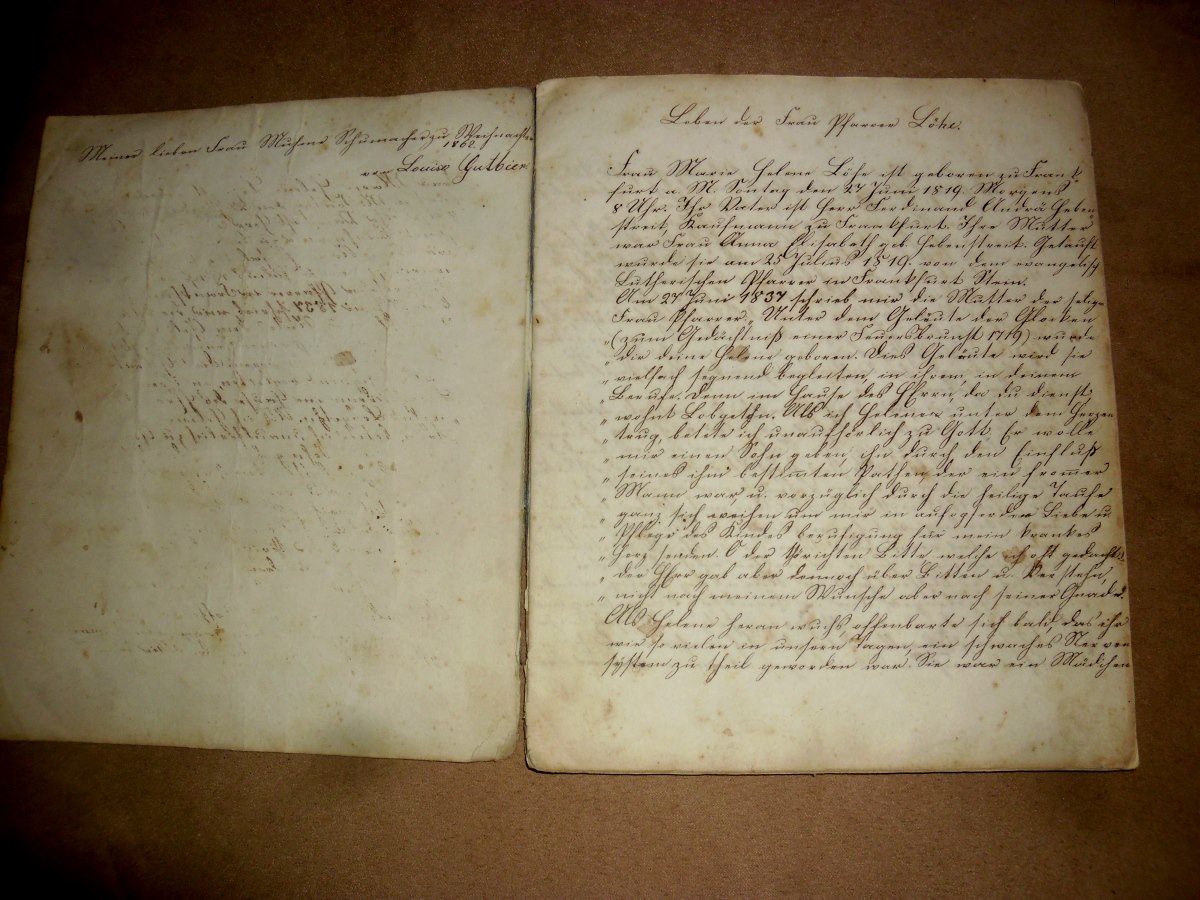 Meiner lieben Frau Muhme Schumacher zu Weihnachten
1862.
von Louise Gutbier
Leben der Frau Pfarrer Löhe.
Frau Marie Helene Löhe ist geboren zu Frank
furt a. M. Sontag den 27 Juni 1819. Morgens
8 Uhr. Ihr Vater ist Herr Ferdinand Andrä Heben
streit, Kaufmann zu Frankfurt. Ihre Mutter
war Frau Anna Elisabeth geb. Hebenstreit. Getauft
wurde sie am 25 Julius 1819. von dem evangelisch
Lutherischen Pfarrer in Frankfurt Stein.
Am 27 Juni 1837 schrieb mir die Mutter der selige
Frau Pfarrer, Unter dem Geläute der Glocken
„(zum Gedächtniß einer Feuersbrunst 1719) wurde
„dir deine Helene geboren. Dies Geläute wird sie
„vielfach segnend begleiten, in ihrem, in deinem
„Berufe. Denn im Hause des HErrn, da du dienst,
„wohnt Lobgetön. Als ich Helenen unter dem Herzen
„trug, betete ich unaufhörlich zu Gott, Er wolle
„mir einen Sohn geben, ihn durch den Einfluß
„seines ihm bestimten Pathen der ein fromer
„Mann war u. vorzüglich durch die heilige Taufe
„ganz sich weihen um mir in aufopferder Liebe u.
„Pflege des Kindes beruhigung für mein krankes
„Herz senden. O der thörichten Bitte welche ich oft gedacht
„der HErr gab aber dennoch über Bitten u. Verstehn
„nicht nach meinem Wunsche aber nach seiner Gnade.
Als Helene heran wuchs offenbarte sich bald, das ihr
wie so vielen in unsern Tagen, ein schwaches Nerven
system zu theil geworden war. Sie war ein Mädchen